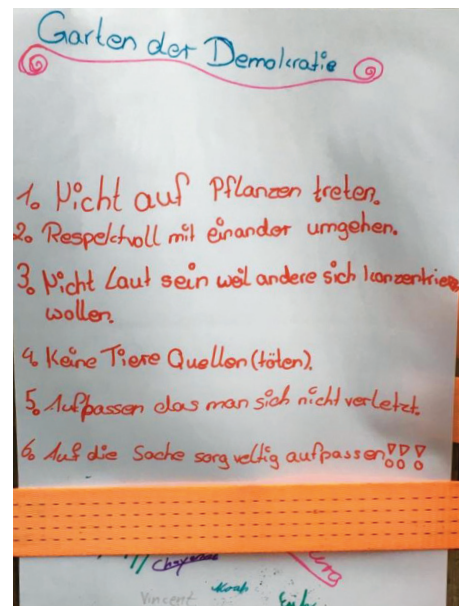 Garten der Demokratie
1. Nicht auf Pflanzen treten.
2. Respektvoll mit einander umgehen.
3. Nicht Laut sein weil andere sich konzentrieren
wollen.
4. Keine Tiere Quellen (töten).
5. Aufpassen das man sich nicht verletzt.
6. Auf die Sache sorg veltig aufpassen!!!
Vincent